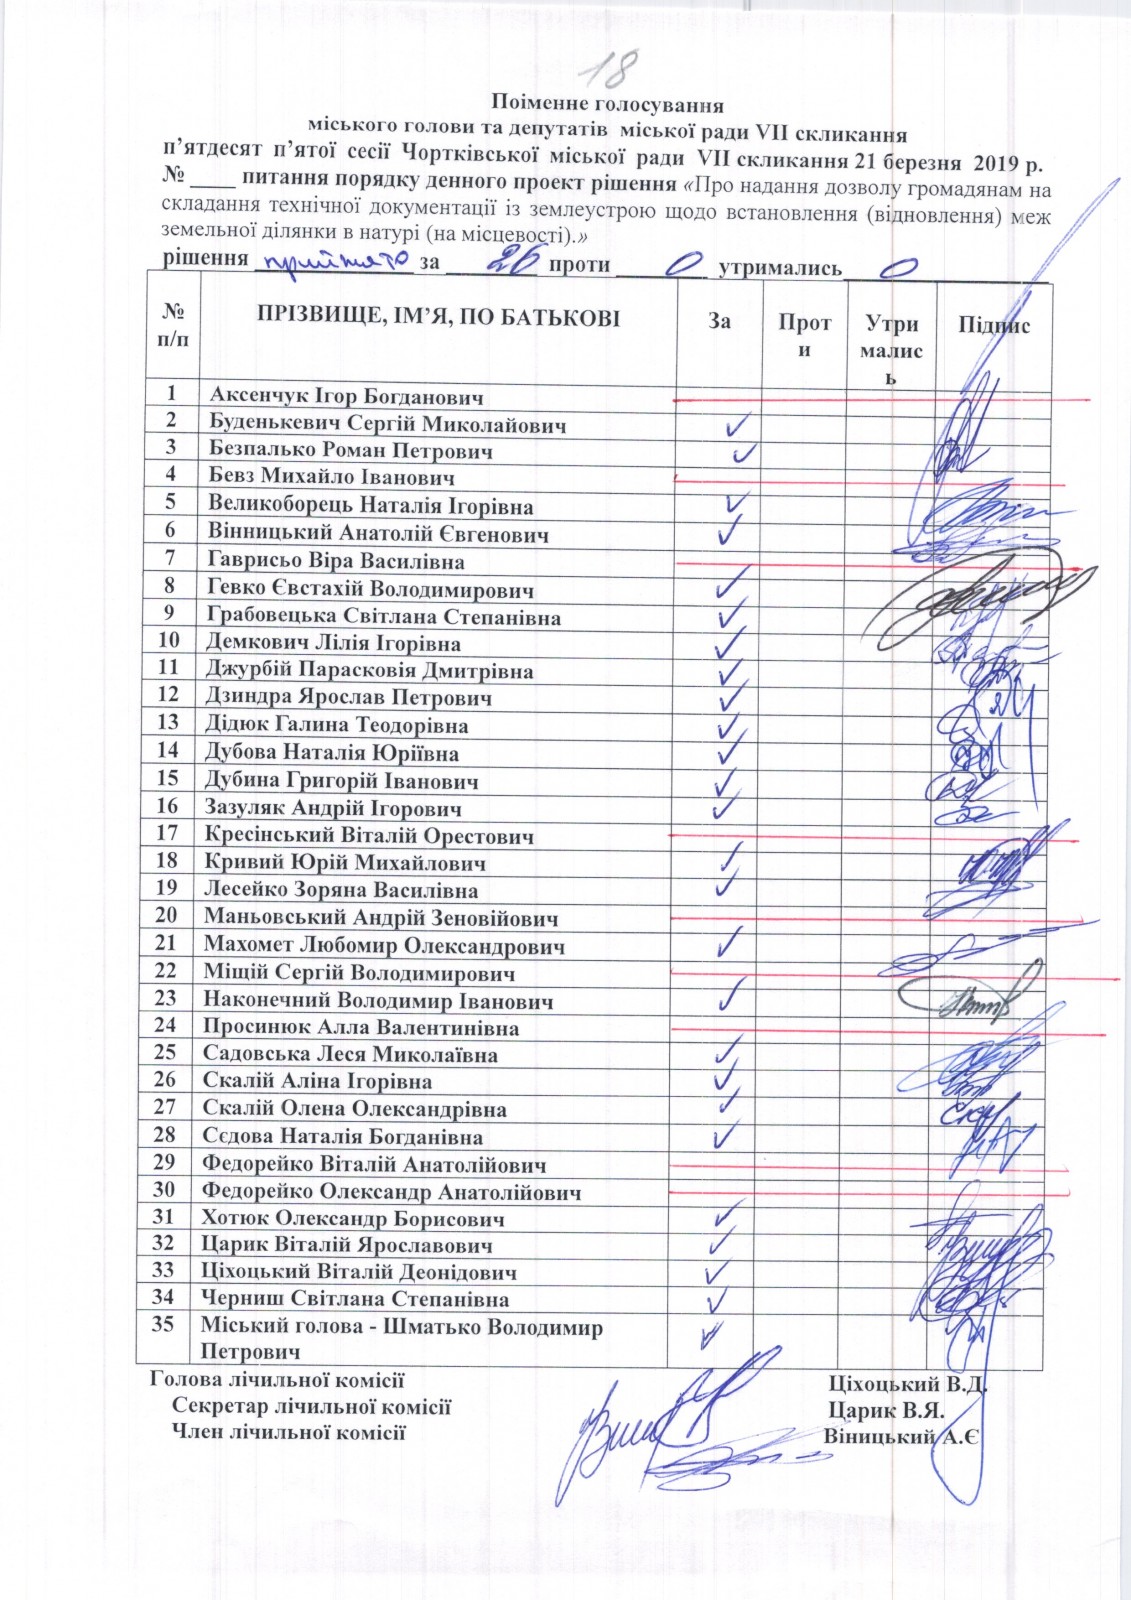 18
Поіменне голосування
міського голови та депутатів міської ради VII скликання
п’ятдесят п’ятої сесії Чортківської міської ради VII скликання 21 березня 2019 р.
№ ____ питання порядку денного проект рішення «Про надання дозволу громадянам на
складання технічної документації із землеустрою щодо встановлення (відновлення) меж
земельної ділянки в натурі (на місцевості).»
рішення прийнято за 26 проти 0 утримались 0
№ п/п ПРІЗВИЩЕ, ІМ’Я, ПО БАТ�ькОВІ За Проти Утримались Підпис
1 Аксенчук Ігор Богданович
2 Буденькевич Сергій Миколайович ✓
3 Безпалько Роман Петрович ✓
4 Бевз Михайло Іванович
5 Великоборець Наталія Ігорівна ✓
6 Вінницький Анатолій Євгенович ✓
7 Гаврисьо Віра Василівна
8 Гевко Євстахій Володимирович ✓
9 Грабовецька Світлана Степанівна ✓
10 Демкович Лілія Ігорівна ✓
11 Джурбій Парасковія Дмитрівна ✓
12 Дзиндра Ярослав Петрович ✓
13 Дідюк Галина Теодорівна ✓
14 Дубова Наталія Юріївна ✓
15 Дубина Григорій Іванович ✓
16 Зазуляк Андрій Ігорович ✓
17 Кресінський Віталій Орестович
18 Кривий Юрій Михайлович ✓
19 Лесейко Зоряна Василівна ✓
20 Маньовський Андрій Зеновійович
21 Махомет Любомир Олександрович ✓
22 Міщій Сергій Володимирович
23 Наконечний Володимир Іванович ✓
24 Просинюк Алла Валентинівна
25 Садовська Леся Миколаївна ✓
26 Скалій Аліна Ігорівна ✓
27 Скалій Олена Олександрівна ✓
28 Сєдова Наталія Богданівна ✓
29 Федорейко Віталій Анатолійович
30 Федорейко Олександр Анатолійович
31 Хотюк Олександр Борисович ✓
32 Царик Віталій Ярославович ✓
33 Ціхоцький Віталій Деонідович ✓
34 Черниш Світлана Степанівна ✓
35 Міський голова - Шматько Володимир ✓
Петрович
Голова лічильної комісії Ціхоцький В.Д.
Секретар лічильної комісії Царик В.Я.
Член лічильної комісії Віницький А.Є